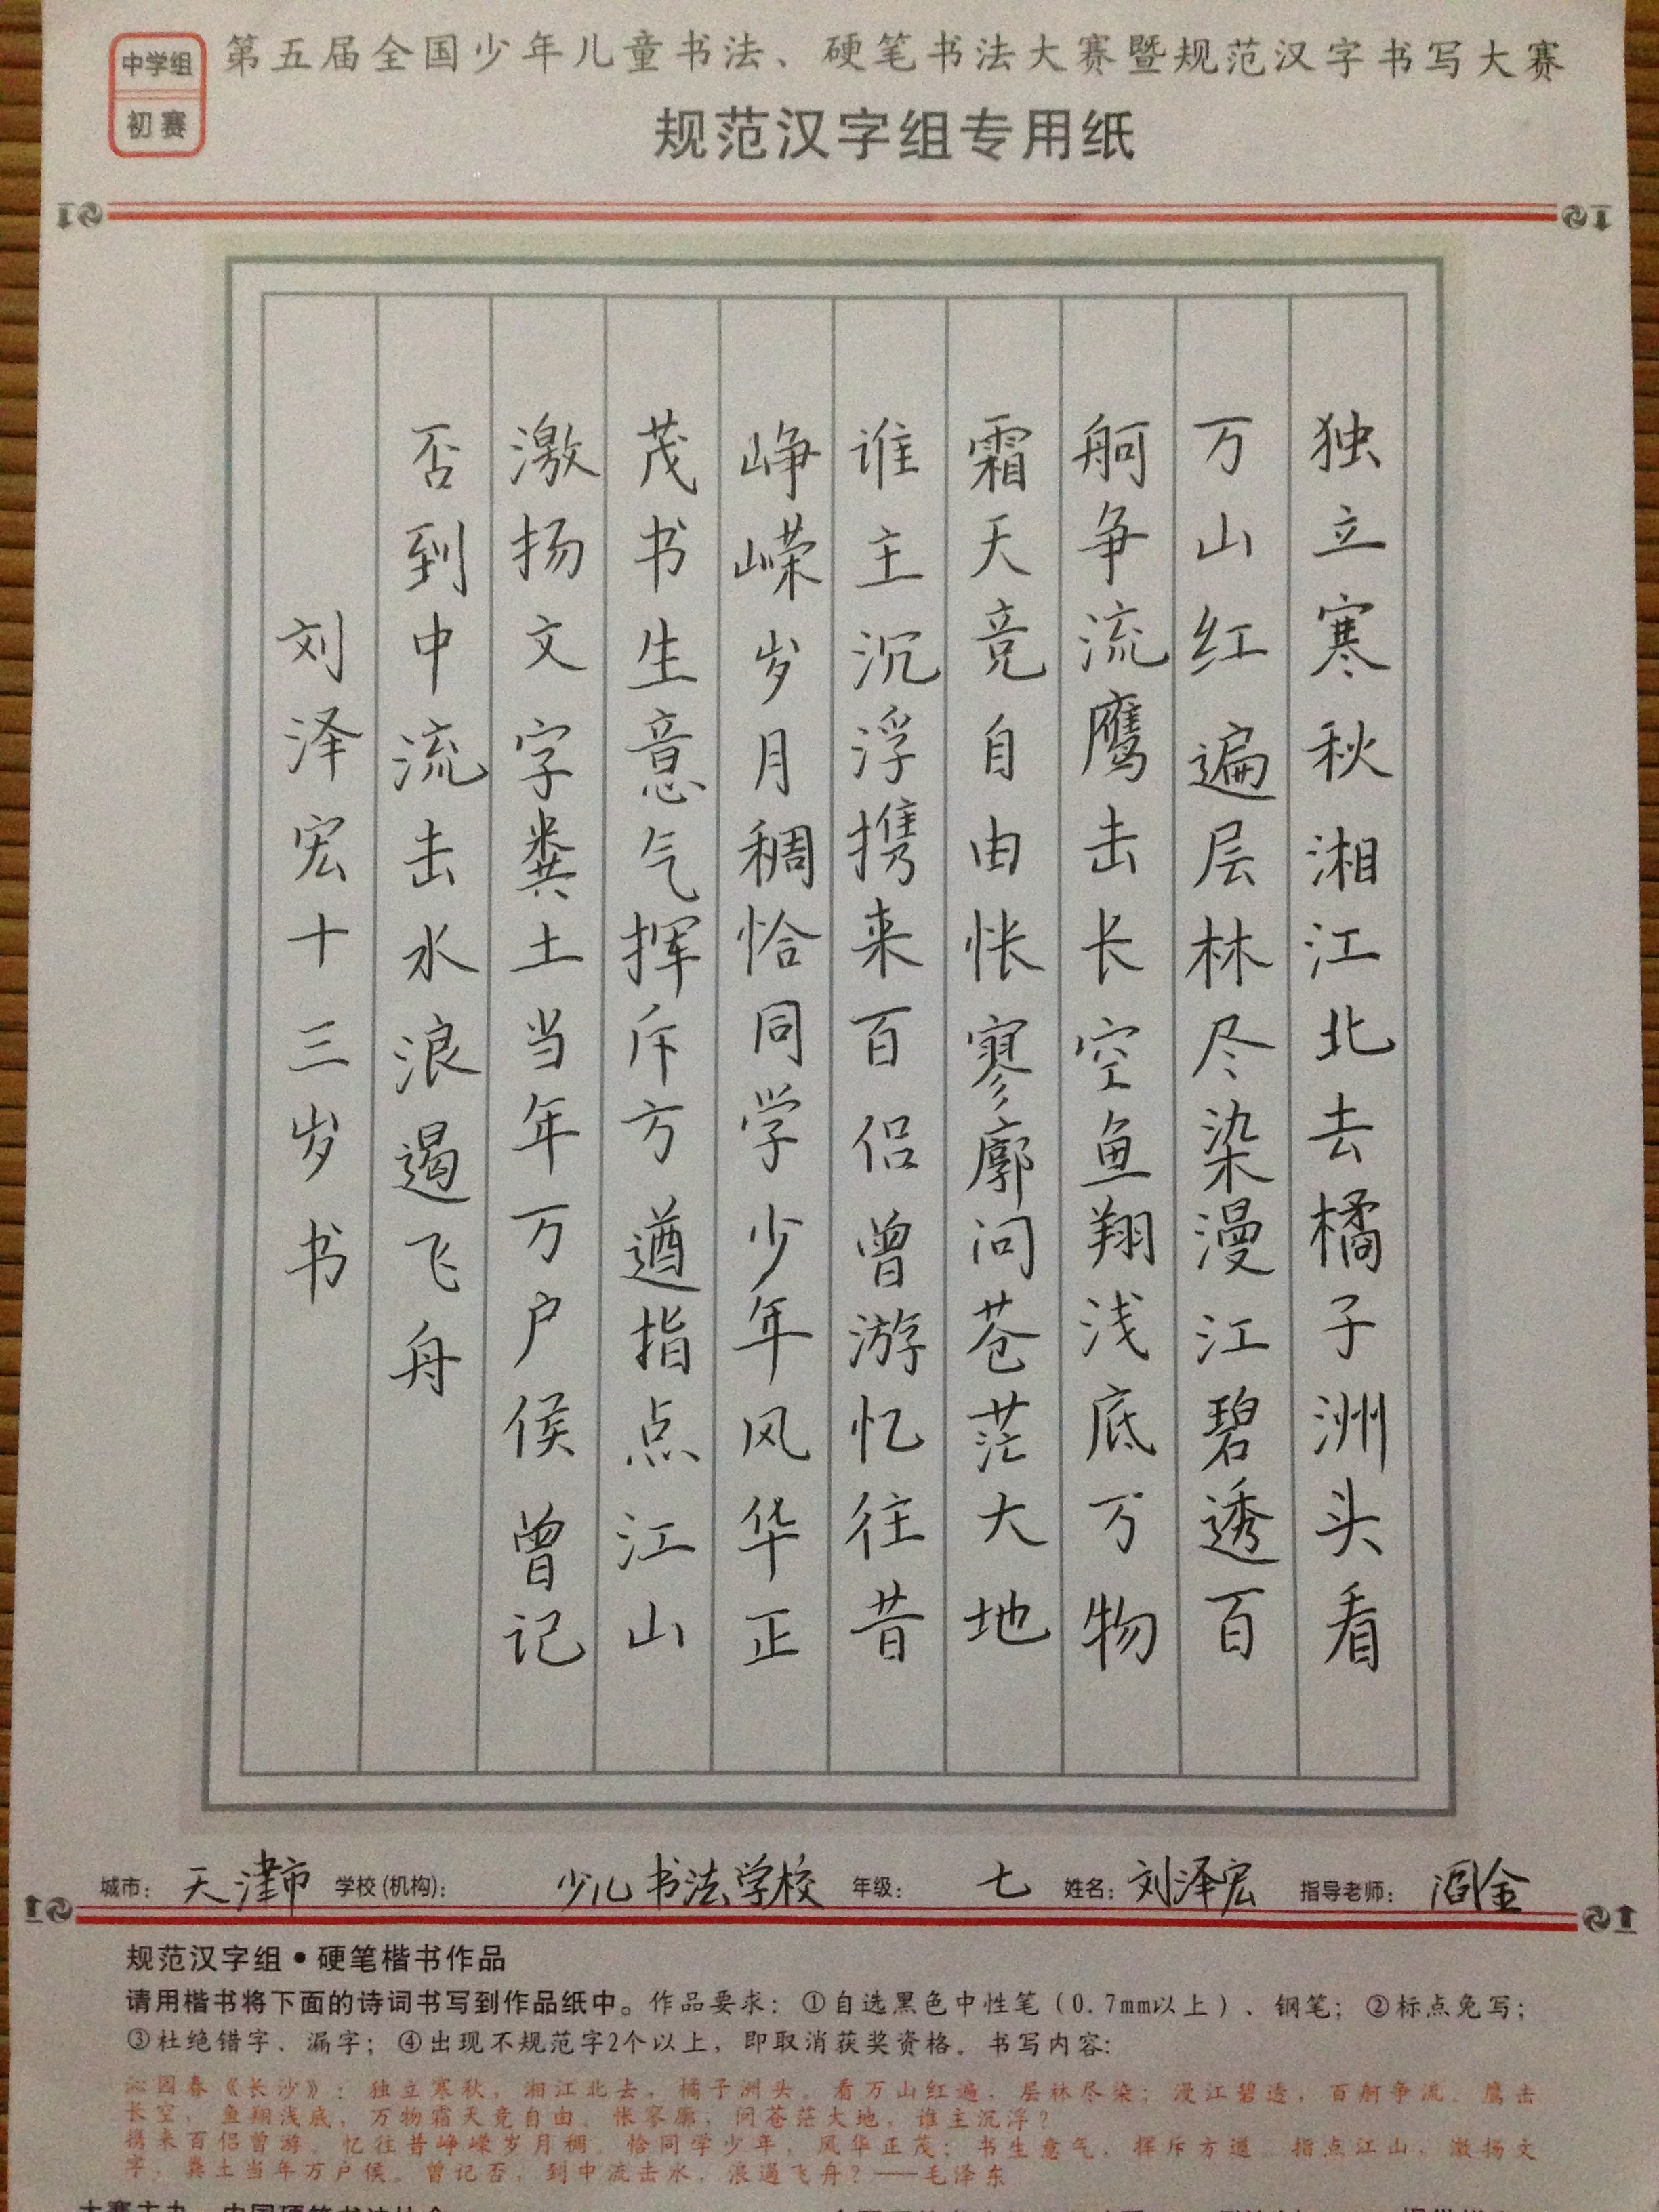 中学组
初赛
第五届全国少年儿童书法、硬笔书法大赛暨规范汉字书写大赛
规范汉字组专用纸
独立寒秋湘江北去橘子洲头看
万山红遍层林尽染漫江碧透百
舸争流鹰击长空鱼翔浅底万物
霜天竞自由怅寥廓问苍茫大地
谁主沉浮携来百侣曾游忆往昔
峥嵘岁月稠恰同学少年风华正
茂书生意气挥斥方遒指点江山
激扬文字粪土当年万户侯曾记
否到中流击水浪遏飞舟
刘泽宏十三岁书
城市：天津市 学校(机构)：少儿书法学校 年级：七 姓名：刘泽宏 指导老师：阎金
规范汉字组•硬笔楷书作品
请用楷书将下面的诗词书写到作品纸中。作品要求：①自选黑色中性笔（0.7mm以上）、钢笔；②标点免写；
③杜绝错字、漏字；④出现不规范字2个以上，即取消获奖资格。书写内容：
沁园春《长沙》：独立寒秋，湘江北去，橘子洲头。看万山红遍，层林尽染；漫江碧透，百舸争流。鹰击
长空，鱼翔浅底，万物霜天竞自由。怅寥廓，问苍茫大地，谁主沉浮？
携来百侣曾游。忆往昔峥嵘岁月稠。恰同学少年，风华正茂；书生意气，挥斥方遒。指点江山，激扬文
字，粪土当年万户侯。曾记否，到中流击水，浪遏飞舟？——毛泽东